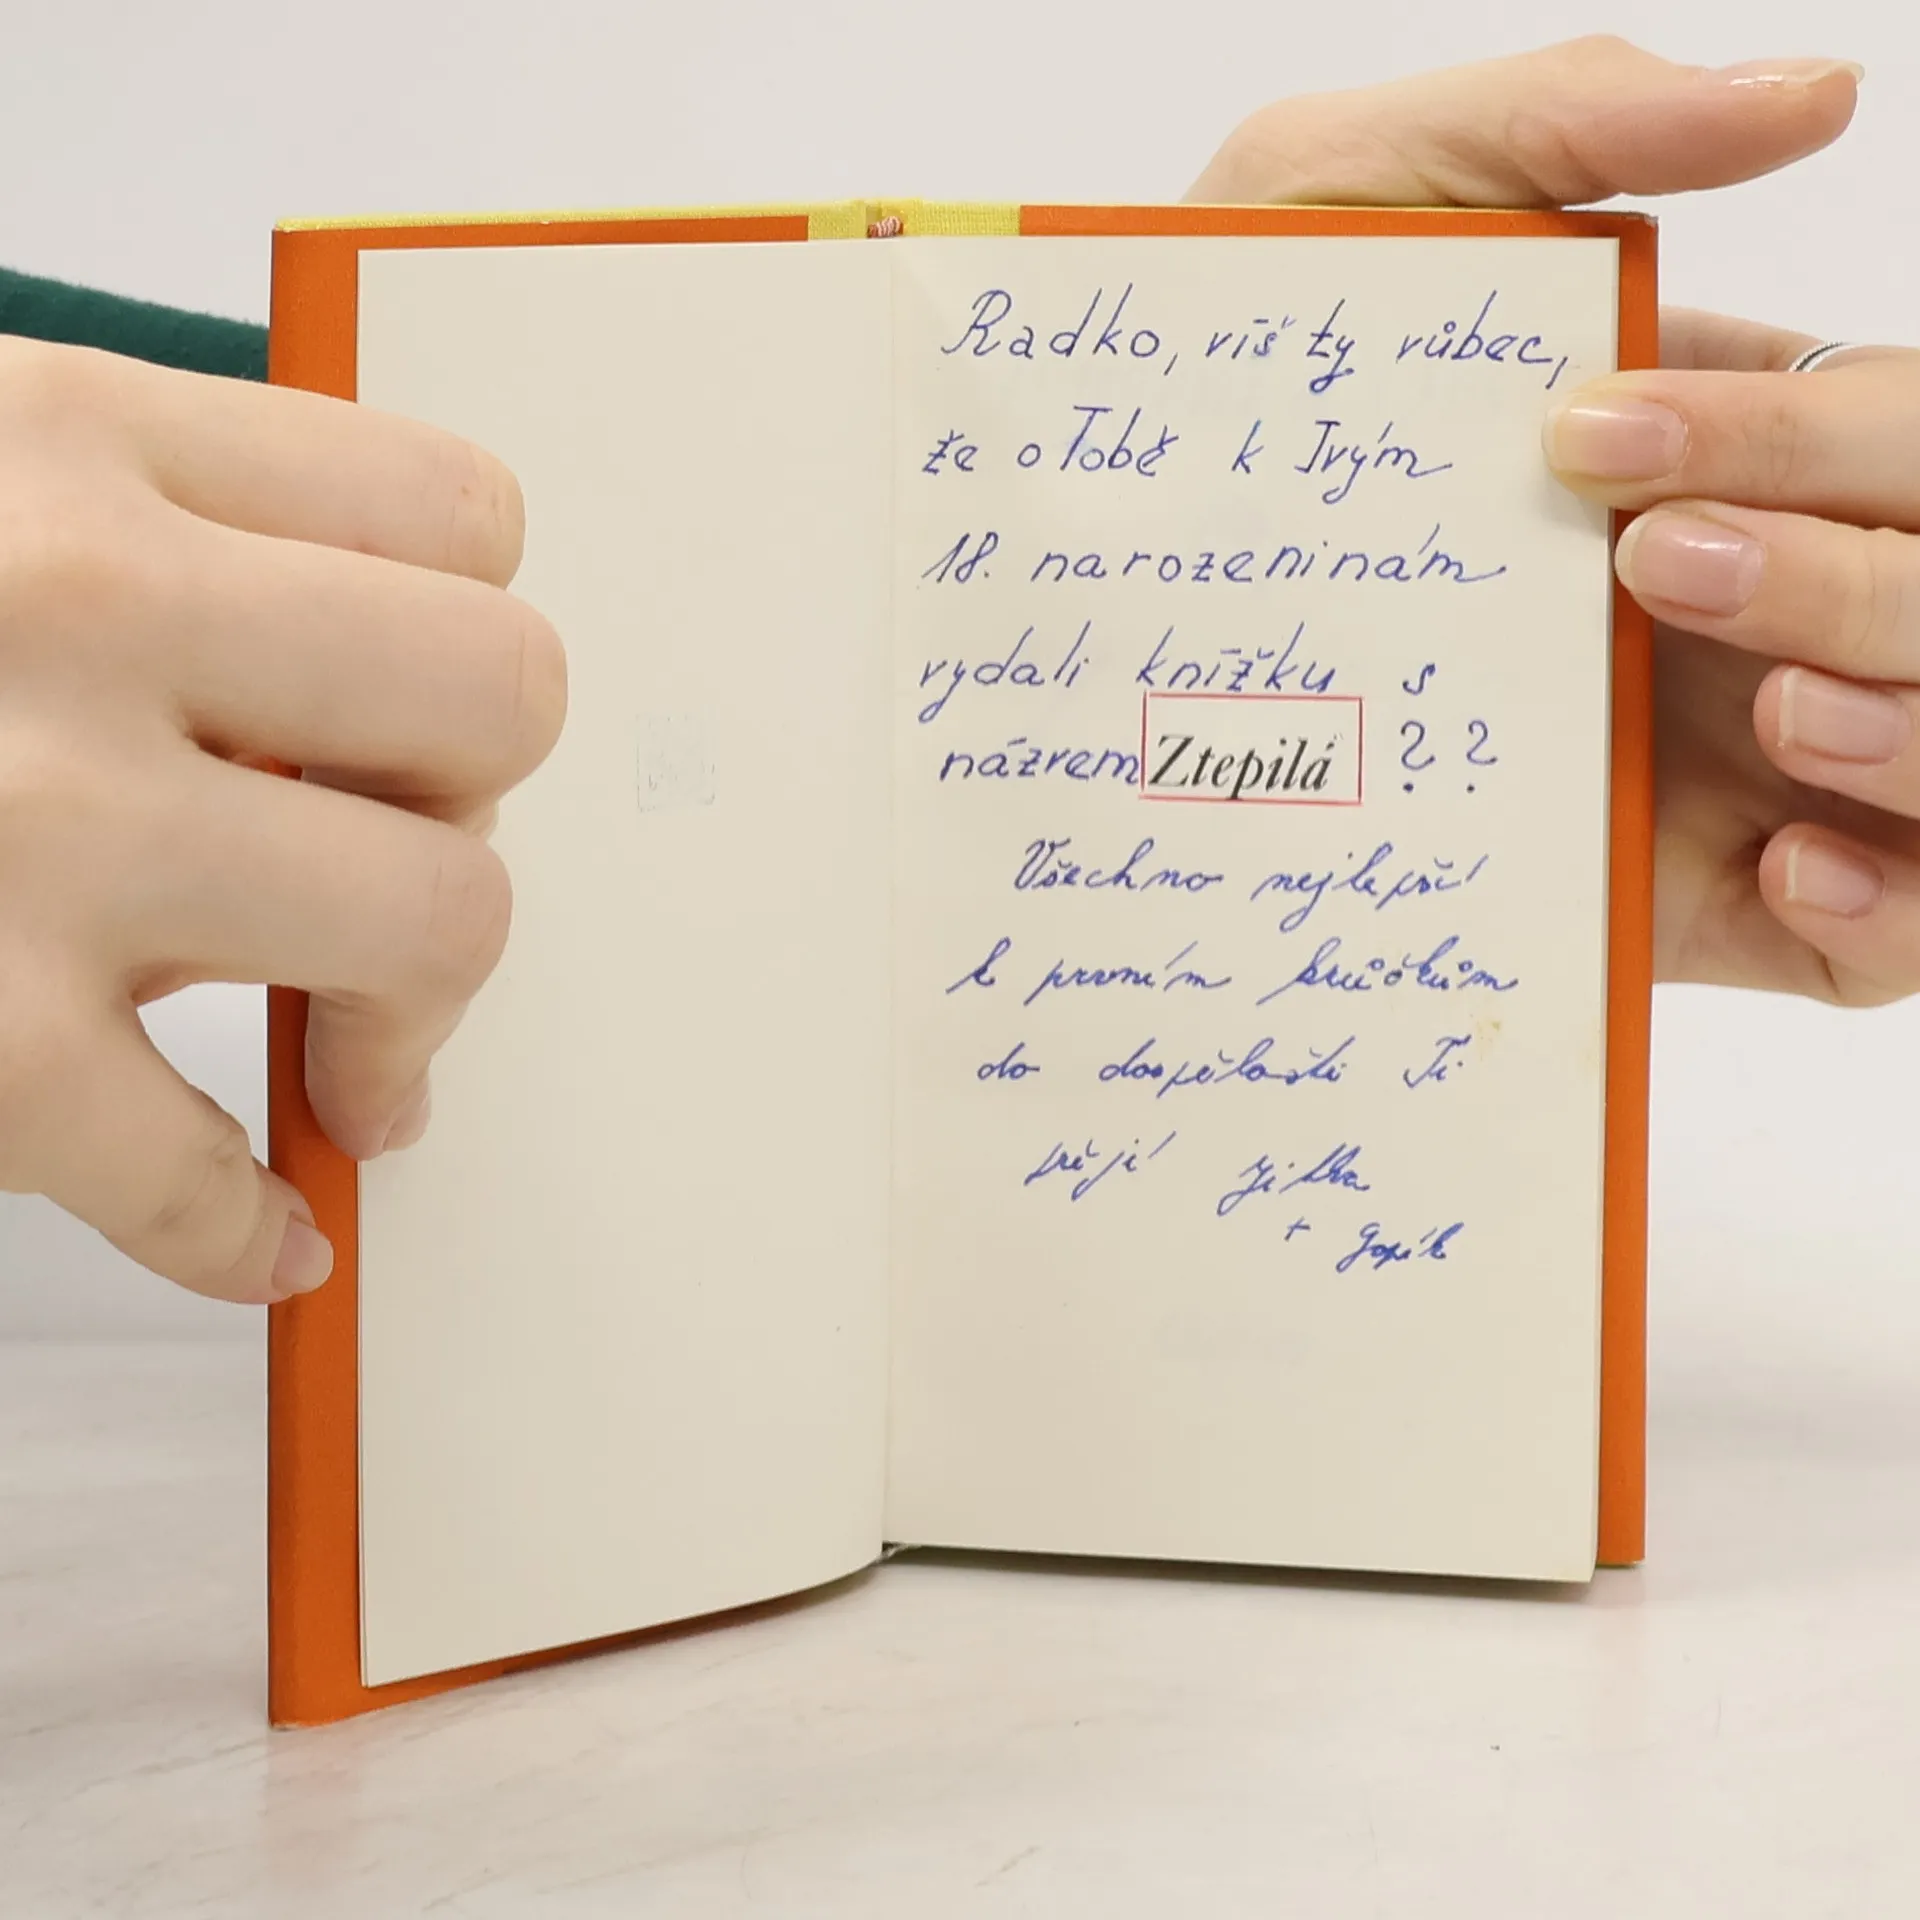 Radko, víš ty vůbec,
že o Tobě k Tvým
18. narozeninám
vydali knížku s
názvem Ztepilá ??
Všechno nejlepší
k prvním krůčkům
do dospělosti Ti
přejí Jitka
+